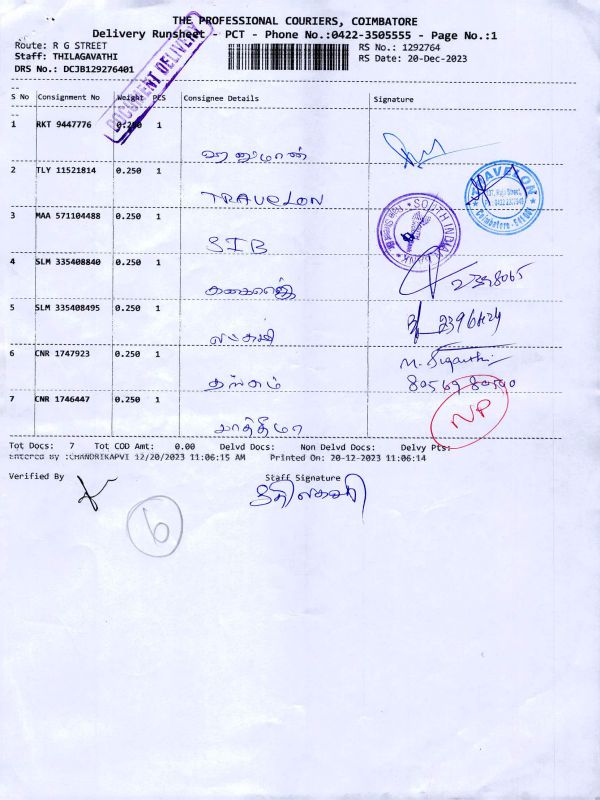 THE PROFESSIONAL COURIERS, COIMBATORE
Delivery Runsheet - PCT - Phone No.:0422-3505555 - Page No.:1
Route: R G STREET RS No.: 1292764
Staff: THILAGAVATHI RS Date: 20-Dec-2023
DRS No.: DCJB129276401
DOCUMENT DELIVERY
S No Consignment No Weight PCS Consignee Details Signature
1 RKT 9447776 0.250 1
ஹனுமான்
2 TLY 11521814 0.250 1
TRAVELON
TRAVELON
Coimbatore
3 MAA 571104488 0.250 1
SIB
SOUTH INDIAN BANK
4 SLM 335408840 0.250 1
2398065
5 SLM 335408495 0.250 1
6 CNR 1747923 0.250 1
தங்கம்
8056980540
7 CNR 1746447 0.250 1
NP
Tot Docs: 7 Tot COD Amt: 0.00 Delvd Docs: Non Delvd Docs: Delvy Pts:
Entered By :CHANDRIKAPVI 12/20/2023 11:06:15 AM Printed On: 20-12-2023 11:06:14
Verified By Staff Signature
6